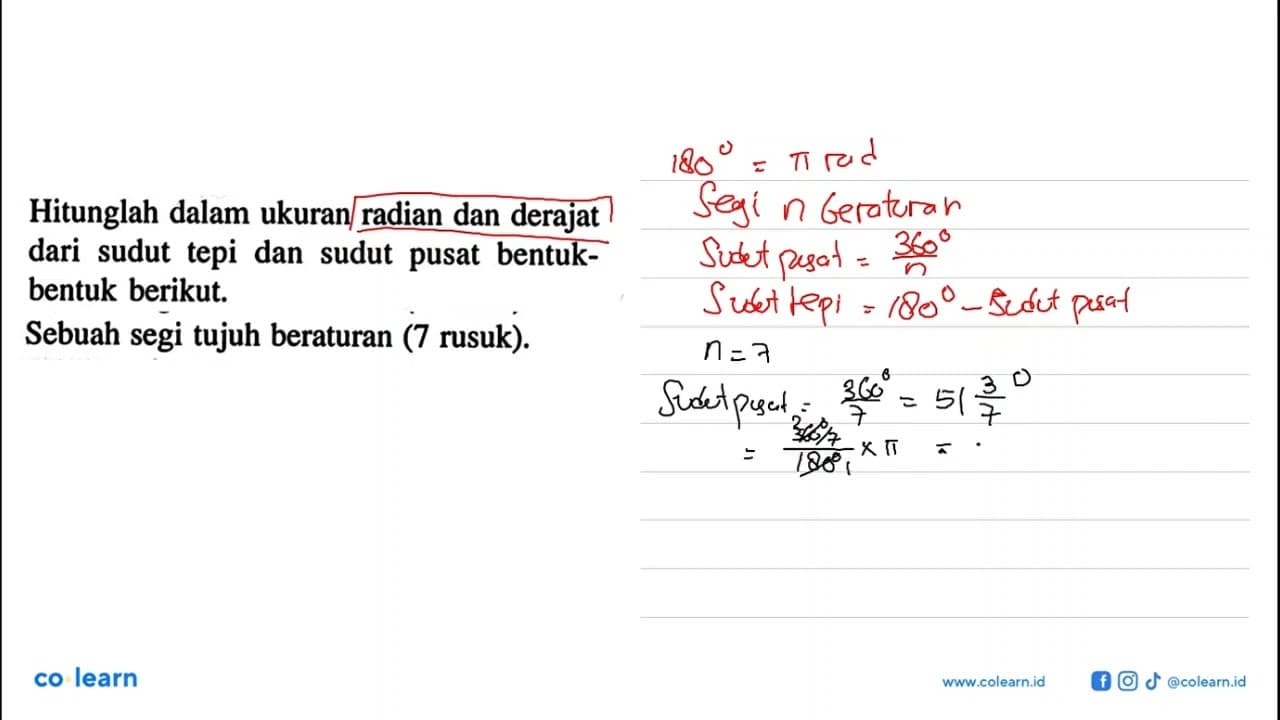 Hitunglah dalam ukuran radian dan derajat
dari sudut tepi dan sudut pusat bentuk-
bentuk berikut.
Sebuah segi tujuh beraturan (7 rusuk).
180° = π rad
Segi n beraturan
Sudut pusat = 360°/n
Sudut tepi = 180° - Sudut pusat
n = 7
Sudut pusat = 360°/7 = 51 3/7°
= (360°/7)/180° × π = .
co learn
www.colearn.id
@colearn.id